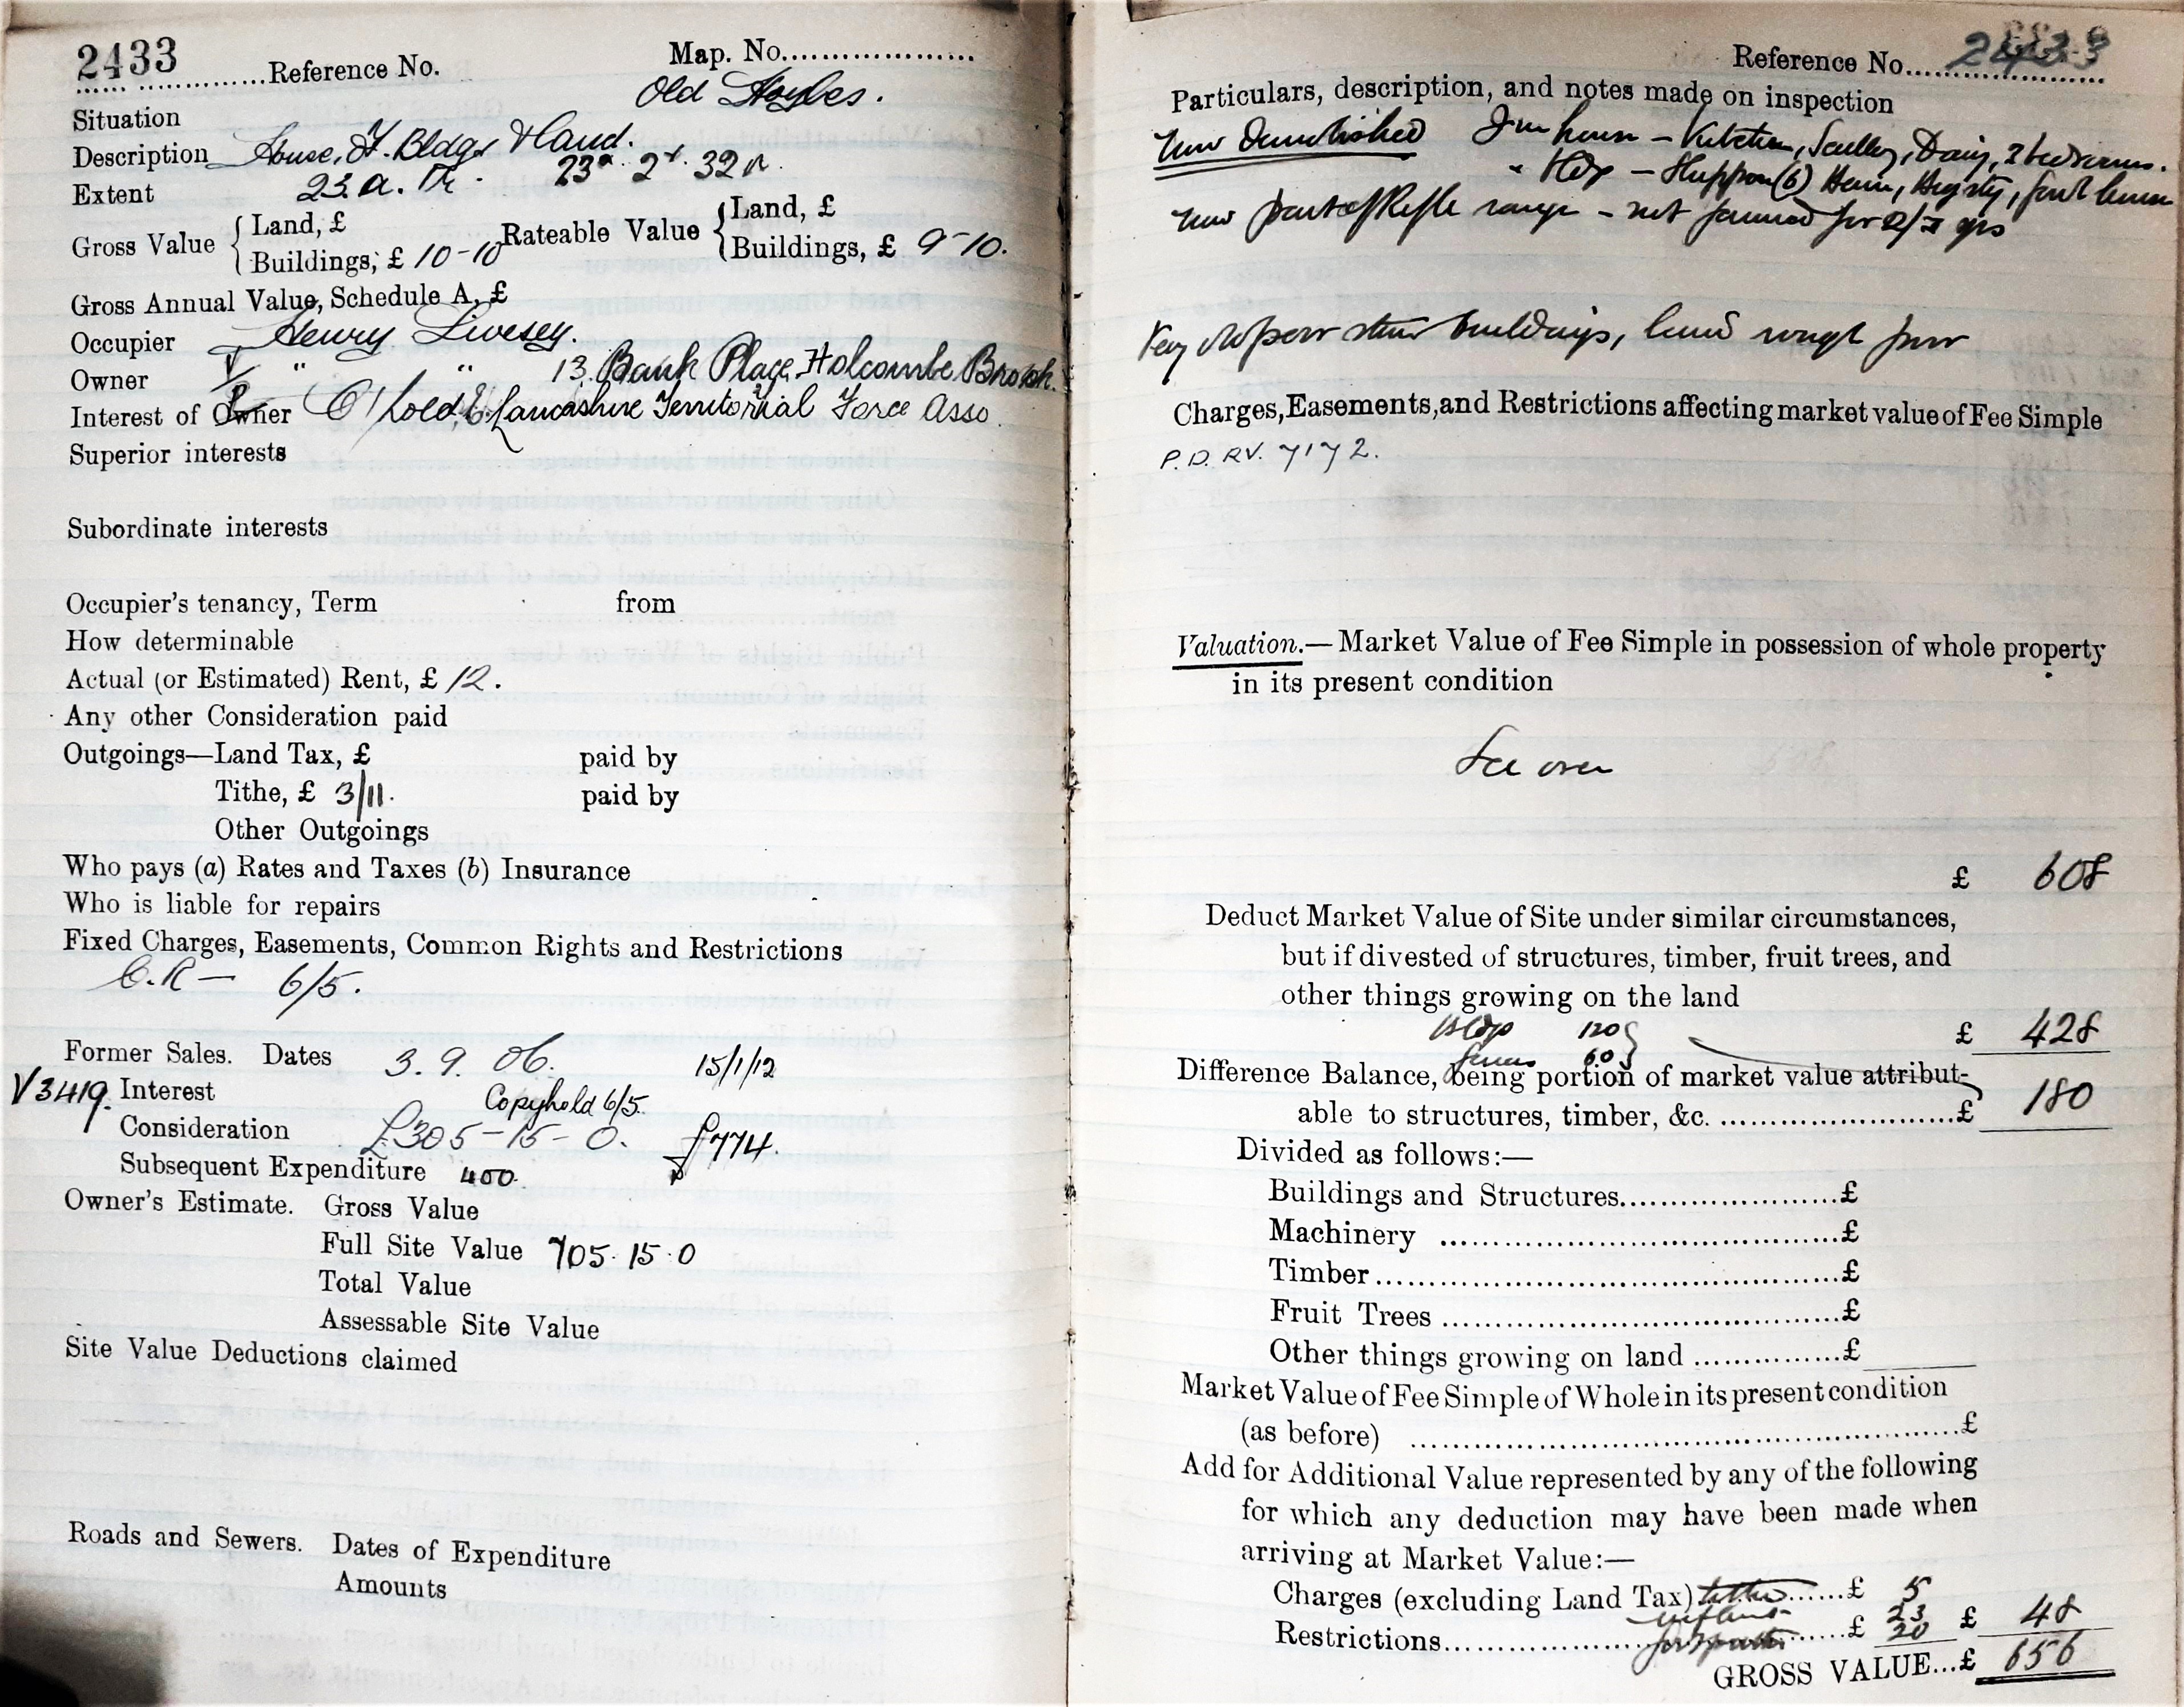 2433 Reference No. Map. No.
Old Hoyles.
Situation
Description House, F. Bldgs & Land.
Extent 23 a. Tr. 23a 2r 32p.
Gross Value { Land, £ Rateable Value { Land, £
Buildings, £ 10-10 Buildings, £ 9-10.
Gross Annual Value, Schedule A, £
Occupier Henry Livesey.
Owner " " 13. Bank Place, Holcombe Brook.
Interest of Owner C'hold, E. Lancashire Territorial Force Asso.
Superior interests
Subordinate interests
Occupier's tenancy, Term from
How determinable
Actual (or Estimated) Rent, £ 12.
Any other Consideration paid
Outgoings—Land Tax, £ paid by
Tithe, £ 3/11. paid by
Other Outgoings
Who pays (a) Rates and Taxes (b) Insurance
Who is liable for repairs
Fixed Charges, Easements, Common Rights and Restrictions
C.R — 6/5.
Former Sales. Dates 3. 9. 06. 15/1/12
V3419. Interest Copyhold 6/5.
Consideration £305-15-0. £774.
Subsequent Expenditure 400.
Owner's Estimate. Gross Value
Full Site Value 705. 15. 0
Total Value
Assessable Site Value
Site Value Deductions claimed
Roads and Sewers. Dates of Expenditure
Amounts
Reference No. 2433
Particulars, description, and notes made on inspection
Now Demolished Fm house – Kitchen, Scullery, Dairy, 2 bedrooms.
" Bldgs – Shippon (6) Barn, Pigsty, fowl house
Now part of Rifle range – not farmed for 2/3 yrs
Very old poor stone buildings, land rough poor
Charges, Easements, and Restrictions affecting market value of Fee Simple
P.D. RV. 7172.
Valuation.—Market Value of Fee Simple in possession of whole property
in its present condition
See over
£ 608
Deduct Market Value of Site under similar circumstances,
but if divested of structures, timber, fruit trees, and
other things growing on the land
Bldgs 120 £ 428
fences 60
Difference Balance, being portion of market value attribut-
able to structures, timber, &c. £ 180
Divided as follows:—
Buildings and Structures £
Machinery £
Timber £
Fruit Trees £
Other things growing on land £
Market Value of Fee Simple of Whole in its present condition
(as before) £
Add for Additional Value represented by any of the following
for which any deduction may have been made when
arriving at Market Value:—
Charges (excluding Land Tax) tithe £ 5
23 £ 48
Restrictions £ 20
GROSS VALUE...£ 656